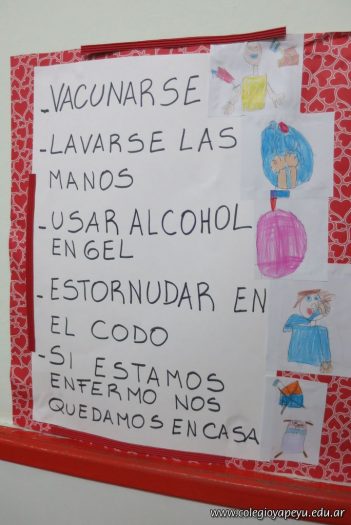 -VACUNARSE
-LAVARSE LAS
MANOS
-USAR ALCOHOL
EN GEL
-ESTORNUDAR EN
EL CODO
-SI ESTAMOS
ENFERMO NOS
QUEDAMOS EN CASA
www.colegioyapeyu.edu.ar